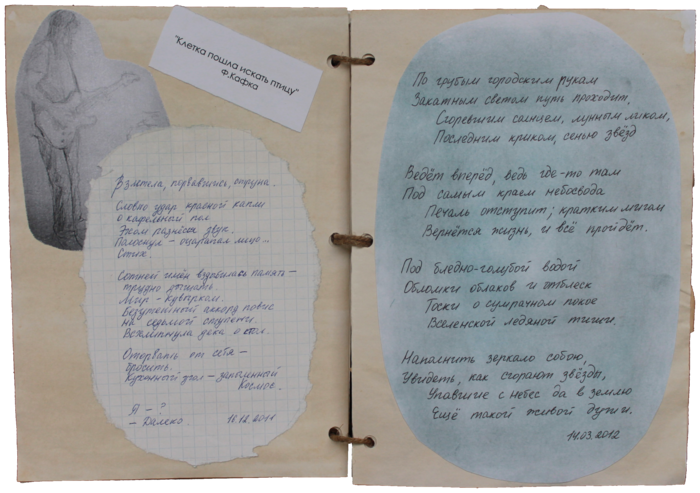 "Клетка пошла искать птицу"
Ф.Кафка
Взлетела, порвавшись, струна.
Словно удар красной капли
о кафельный пол
Эхом разнёсся звук.
Полоснул – оцарапал лицо...
Стих.
Сотней имён взорвалась память –
трудно дышать.
Мир – кувырком.
аккорд повис
на седьмой ступени.
Всхлипнула дека о стол.
Оторвать от себя –
бросить.
Кухонный угол –
Космос.
Я – ?
– Далеко. 11.12.2011
По грубым городским рукам
Закатным светом путь проходит,
Сгоревшим солнцем, лунным ликом,
Последним криком, сенью звёзд
Ведёт вперёд, ведь где-то там
Под самым краем небосвода
Печаль отступит; кратким мигом
Вернётся жизнь, и всё пройдёт.
Под бледно-голубой водой
Обломки облаков и отблеск
Тоски о сумрачном покое
Вселенской ледяной тиши.
Наполнить зеркало собою,
Увидеть, как сгорают звёзды,
Упавшие с небес да в землю
Ещё такой живой души.
14.03.2012